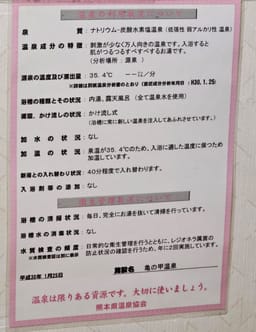 温泉の利用状況について
泉質：ナトリウム-炭酸水素塩温泉（低張性 弱アルカリ性 温泉）
温泉成分の特徴：刺激が少なく万人向きの温泉です。入浴すると
肌がつるつるすべすべするお湯です。
（分析場所：源泉）
源泉の温度及び湧出量：35．4℃ ー㍑／分
※詳細は別掲温泉分析書のとおり（直近成分分析年月日：H30．1．25）
浴槽の種類とその状況：内湯、露天風呂（全て温泉水を使用）
循環、かけ流しの状況：かけ流し式
（浴槽に常に新しい温泉を注入してあふれさせています。）
加水の状況：なし
加温の状況：泉温が35．4℃のため、入浴に適した温度に保つため
加温しています。
新湯との入れ替わり状況：40分程度で入れ替わります。
入浴剤等の添加：なし
浴槽の清掃状況：毎日、完全にお湯を抜いて清掃を行っています。
浴槽水の消毒状況：なし
水質検査の頻度：日常的な衛生管理を行うとともに、レジオネラ属菌の
防止状況の確認を行うため、年に2回実施しています。
平成30年1月25日
施設名 亀の甲温泉
温泉は限りある資源です。大切に使いましょう。
熊本県温泉協会